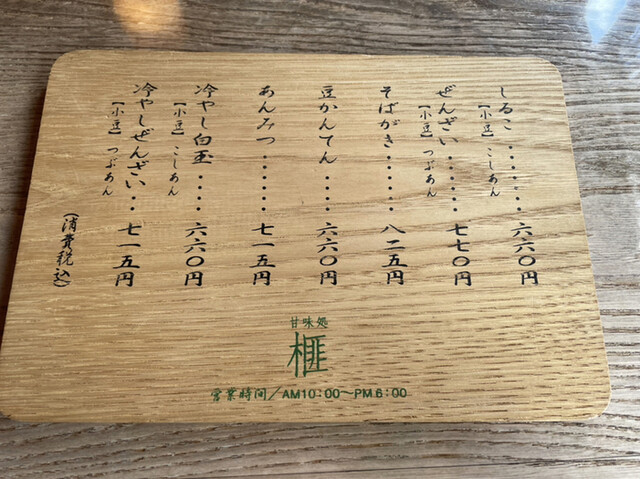 しるこ……六六〇円
【小豆】こしあん
ぜんざい……七七〇円
【小豆】つぶあん
そばがき……八二五円
豆かんてん……六六〇円
あんみつ……七一五円
冷やし白玉……六六〇円
【小豆】こしあん
冷やしぜんざい……七一五円
【小豆】つぶあん
(消費税込)
甘味処
榧
営業時間/AM10:00〜PM.6:00